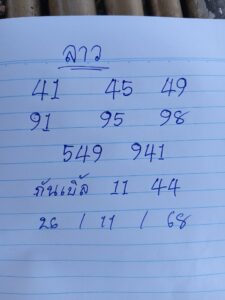 ลาว
41 45 49
91 95 98
549 941
กันเบิ้ล 11 44
26 / 11 / 68